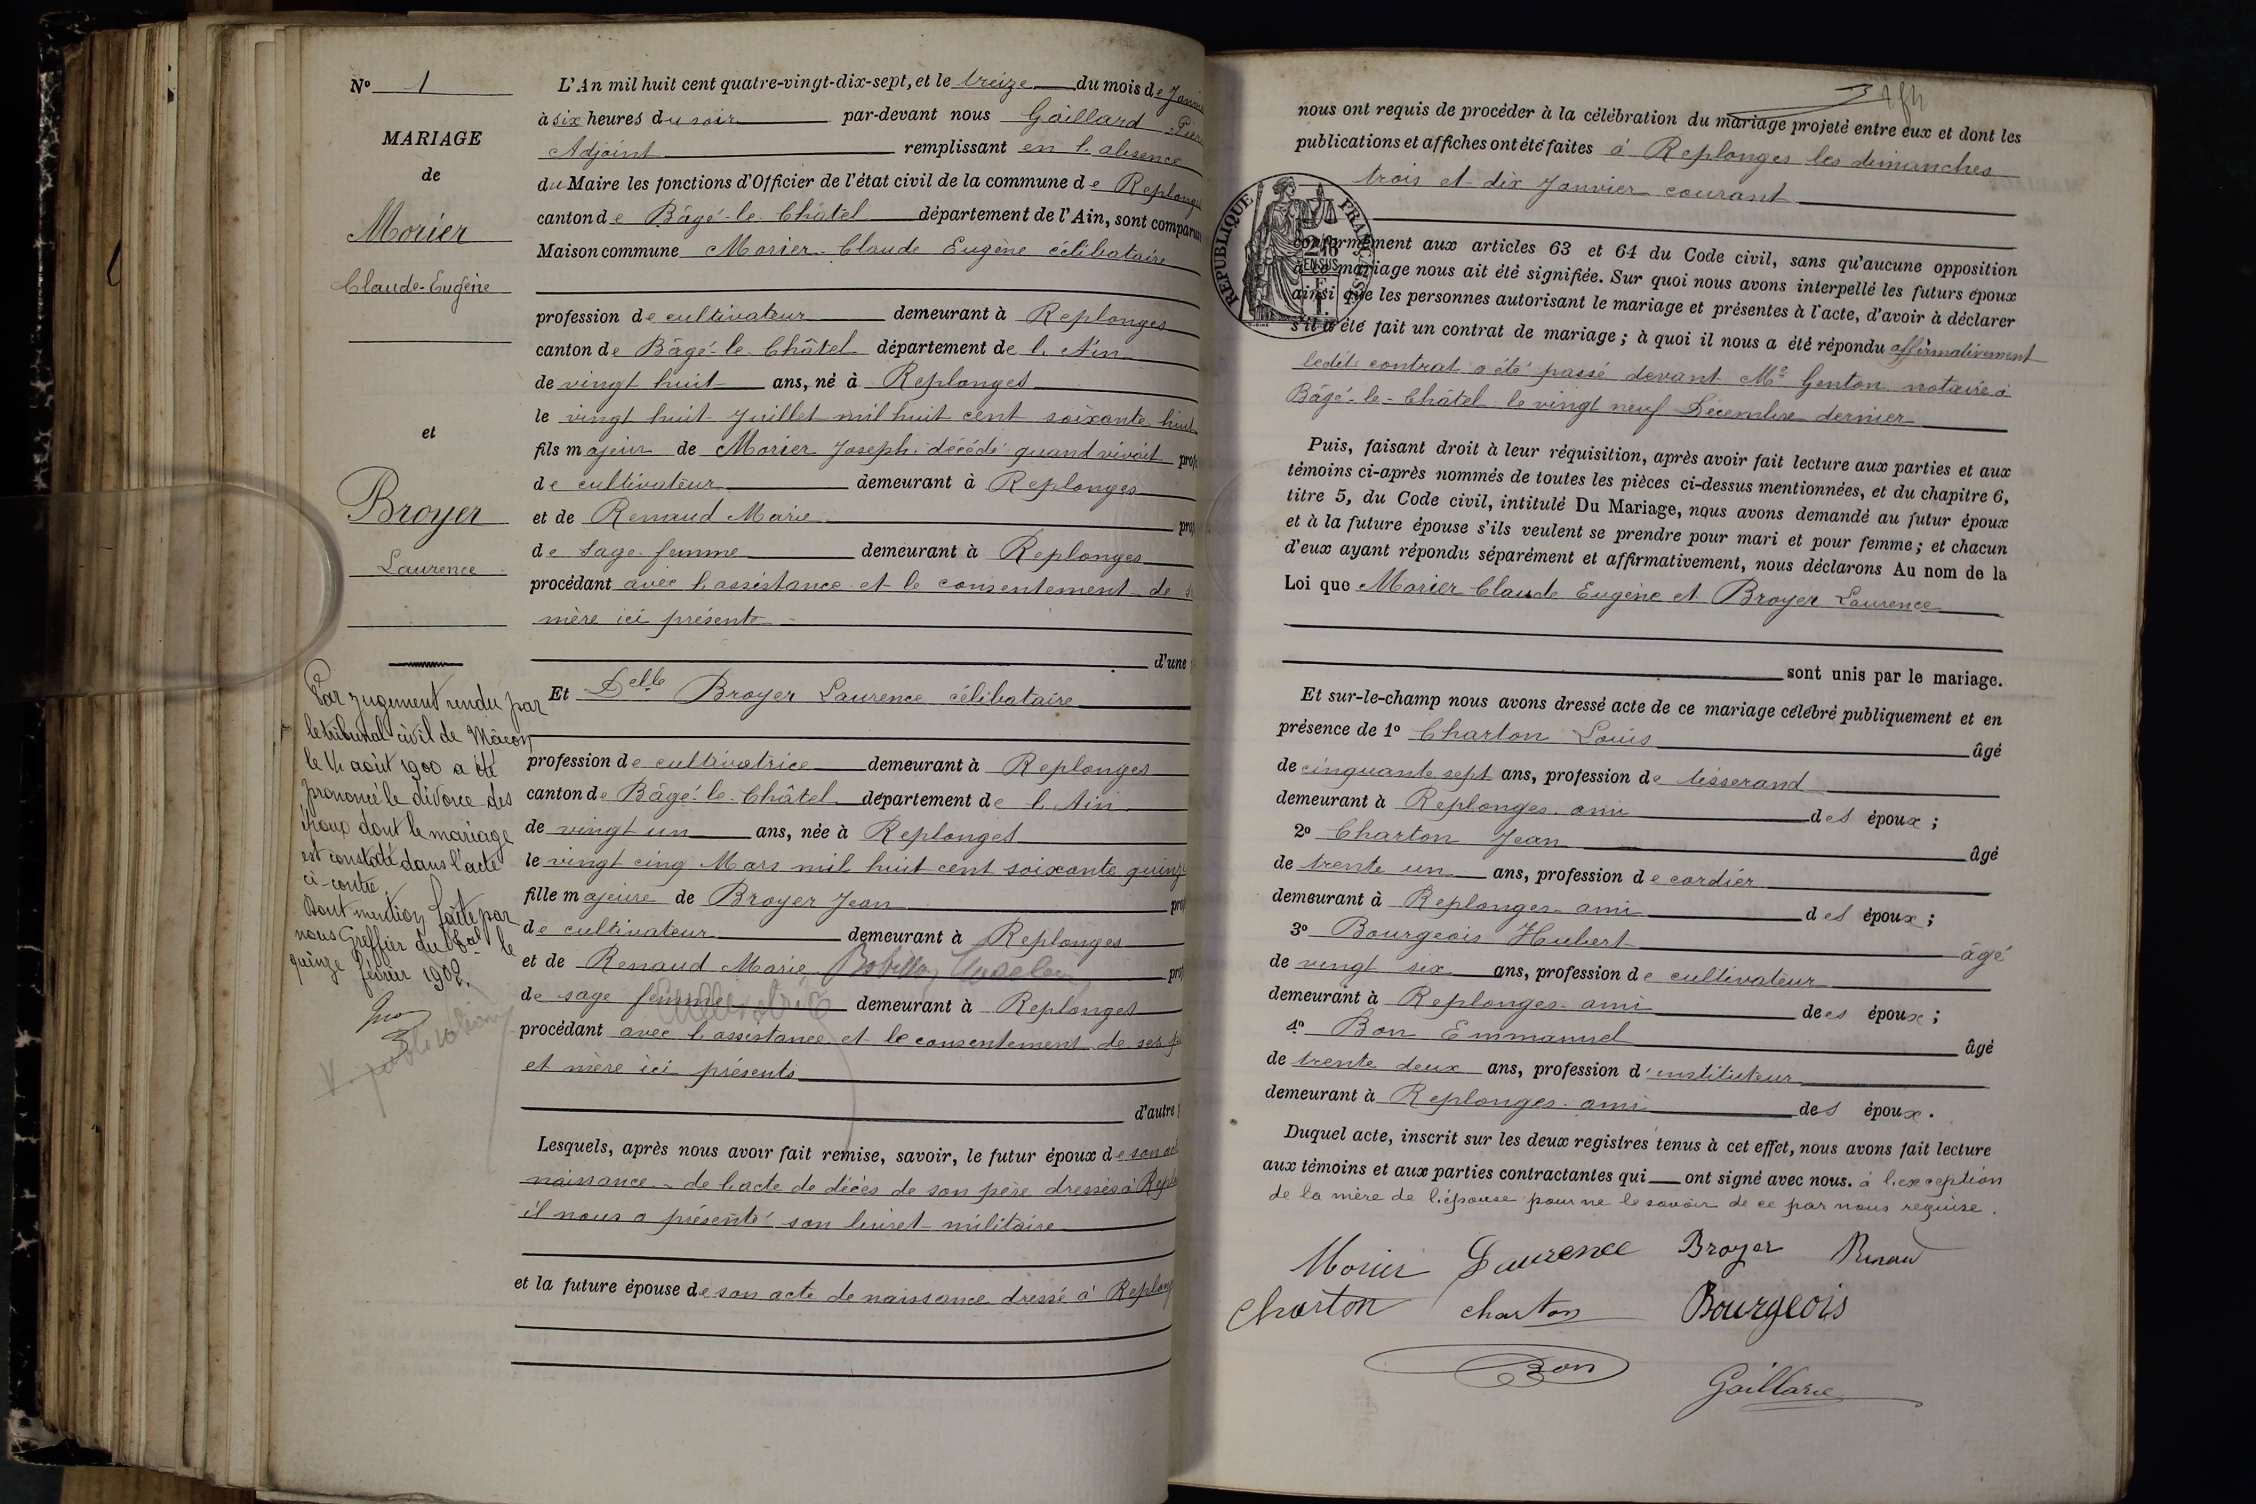 N° 1
MARIAGE
de
Morier
Claude-Eugène
et
Broyer
Laurence
Par jugement rendu par
le tribunal civil de Mâcon
le 14 août 1900 a été
prononcé le divorce des
époux dont le mariage
est constaté dans l'acte
ci-contre.
Dont mention faite par
nous Greffier du Bal le
quinze février 1902.
V. publication
L'An mil huit cent quatre-vingt-dix-sept, et le treize du mois de Janvier
à six heures du soir par-devant nous Gaillard Pierre
Adjoint remplissant en l'absence
du Maire les fonctions d'Officier de l'état civil de la commune de Replonges
canton de Bâgé-le-Châtel département de l'Ain, sont comparus
Maison commune Morier Claude Eugène célibataire
profession de cultivateur demeurant à Replonges
canton de Bâgé-le-Châtel département de l'Ain
de vingt huit ans, né à Replonges
le vingt huit Juillet mil huit cent soixante huit
fils majeur de Morier Joseph décédé quand vivait prof
de cultivateur demeurant à Replonges
et de Renaud Marie prof
de sage femme demeurant à Replonges
procédant avec l'assistance et le consentement de sa
mère ici présente
d'une
Et Delle Broyer Laurence célibataire
profession de cultivatrice demeurant à Replonges
canton de Bâgé-le-Châtel département de l'Ain
de vingt un ans, née à Replonges
le vingt cinq Mars mil huit cent soixante quinze
fille majeure de Broyer Jean prof
de cultivateur demeurant à Replonges
et de Renaud Marie prof
de sage femme cultivatrice demeurant à Replonges
procédant avec l'assistance et le consentement de ses père
et mère ici présents
d'autre
Lesquels, après nous avoir fait remise, savoir, le futur époux de son acte
naissance de l'acte de décès de son père dressés à Replo
il nous a présenté son livret militaire
et la future épouse de son acte de naissance dressé à Replong
nous ont requis de procéder à la célébration du mariage projeté entre eux et dont les
publications et affiches ont été faites à Replonges les dimanches
trois et dix Janvier courant
REPUBLIQUE FRANÇAISE
conformément aux articles 63 et 64 du Code civil, sans qu'aucune opposition
à ce mariage nous ait été signifiée. Sur quoi nous avons interpellé les futurs époux
ainsi que les personnes autorisant le mariage et présentes à l'acte, d'avoir à déclarer
s'il a été fait un contrat de mariage ; à quoi il nous a été répondu affirmativement
ledit contrat a été passé devant Me Genton notaire à
Bâgé-le-Châtel le vingt neuf Décembre dernier
Puis, faisant droit à leur réquisition, après avoir fait lecture aux parties et aux
témoins ci-après nommés de toutes les pièces ci-dessus mentionnées, et du chapitre 6,
titre 5, du Code civil, intitulé Du Mariage, nous avons demandé au futur époux
et à la future épouse s'ils veulent se prendre pour mari et pour femme ; et chacun
d'eux ayant répondu séparément et affirmativement, nous déclarons Au nom de la
Loi que Morier Claude Eugène et Broyer Laurence
sont unis par le mariage.
Et sur-le-champ nous avons dressé acte de ce mariage célébré publiquement et en
présence de 1° Charton Louis âgé
de cinquante sept ans, profession de tisserand
demeurant à Replonges ami des époux ;
2° Charton Jean âgé
de trente un ans, profession de cordier
demeurant à Replonges ami des époux ;
3° Bourgeois Hubert âgé
de vingt six ans, profession de cultivateur
demeurant à Replonges ami dees époux ;
4° Bon Emmanuel âgé
de trente deux ans, profession d'instituteur
demeurant à Replonges ami des époux.
Duquel acte, inscrit sur les deux registres tenus à cet effet, nous avons fait lecture
aux témoins et aux parties contractantes qui ont signé avec nous. à l'exception
de la mère de l'épouse pour ne le savoir de ce par nous requise.
Morier Laurence Broyer Renaud
Charton Charton Bourgeois
Bon
Gaillard